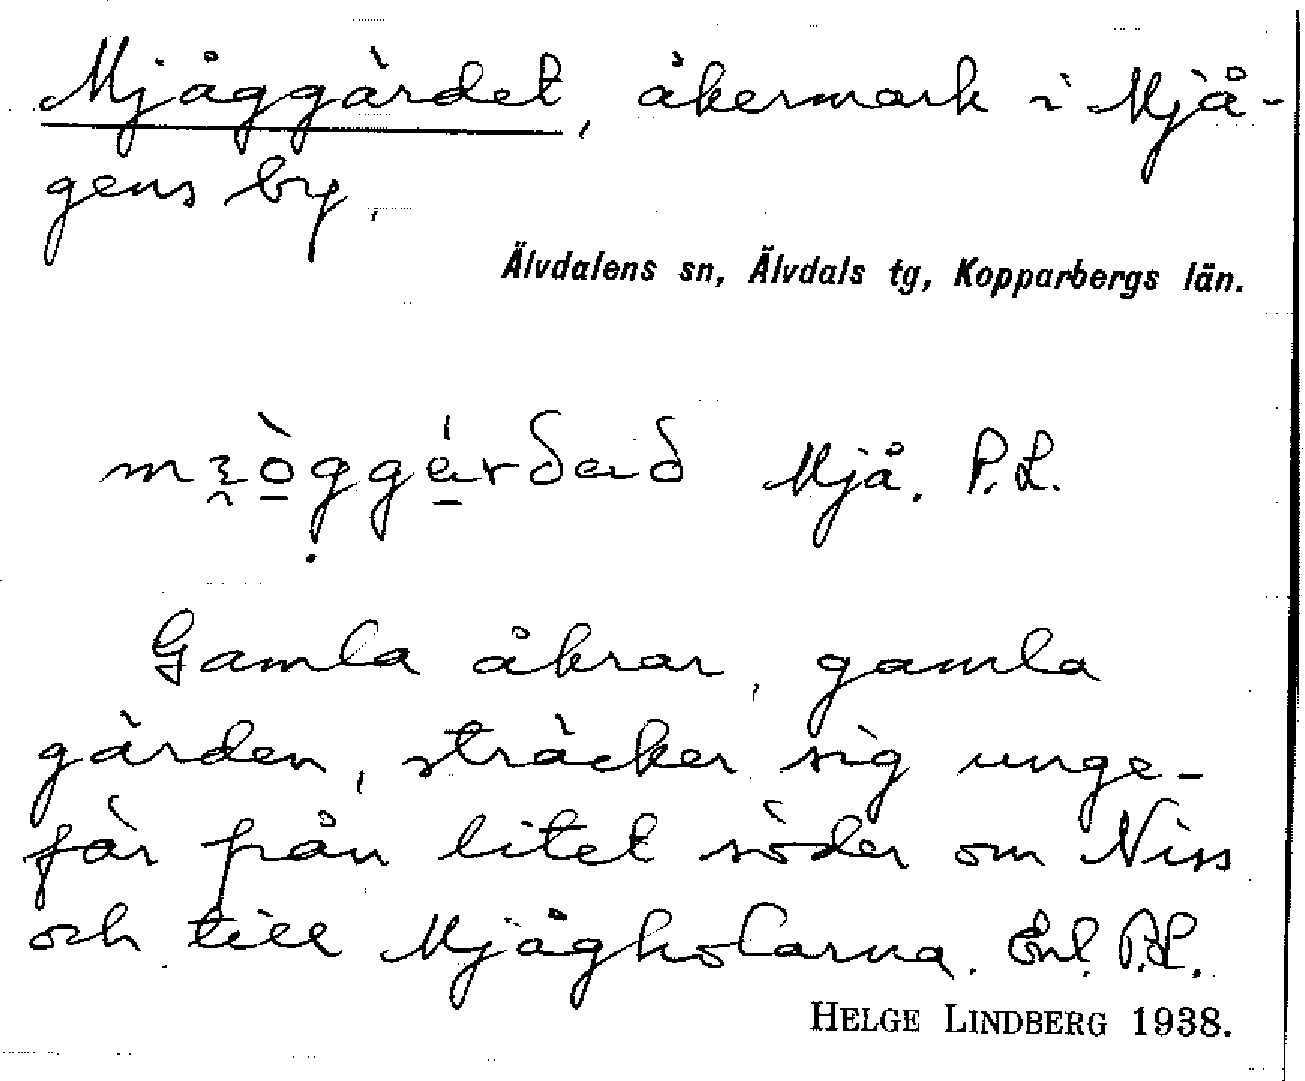 Mjåggärdet, åkermark i Mjå-
gens by.
Älvdalens sn, Älvdals tg, Kopparbergs län.
Mjå. P.L.
Gamla åkrar, gamla
gärden, sträcker sig unge-
fär från litet söder om Niss
och till Mjågholarna. Enl. P.L.
HELGE LINDBERG 1938.